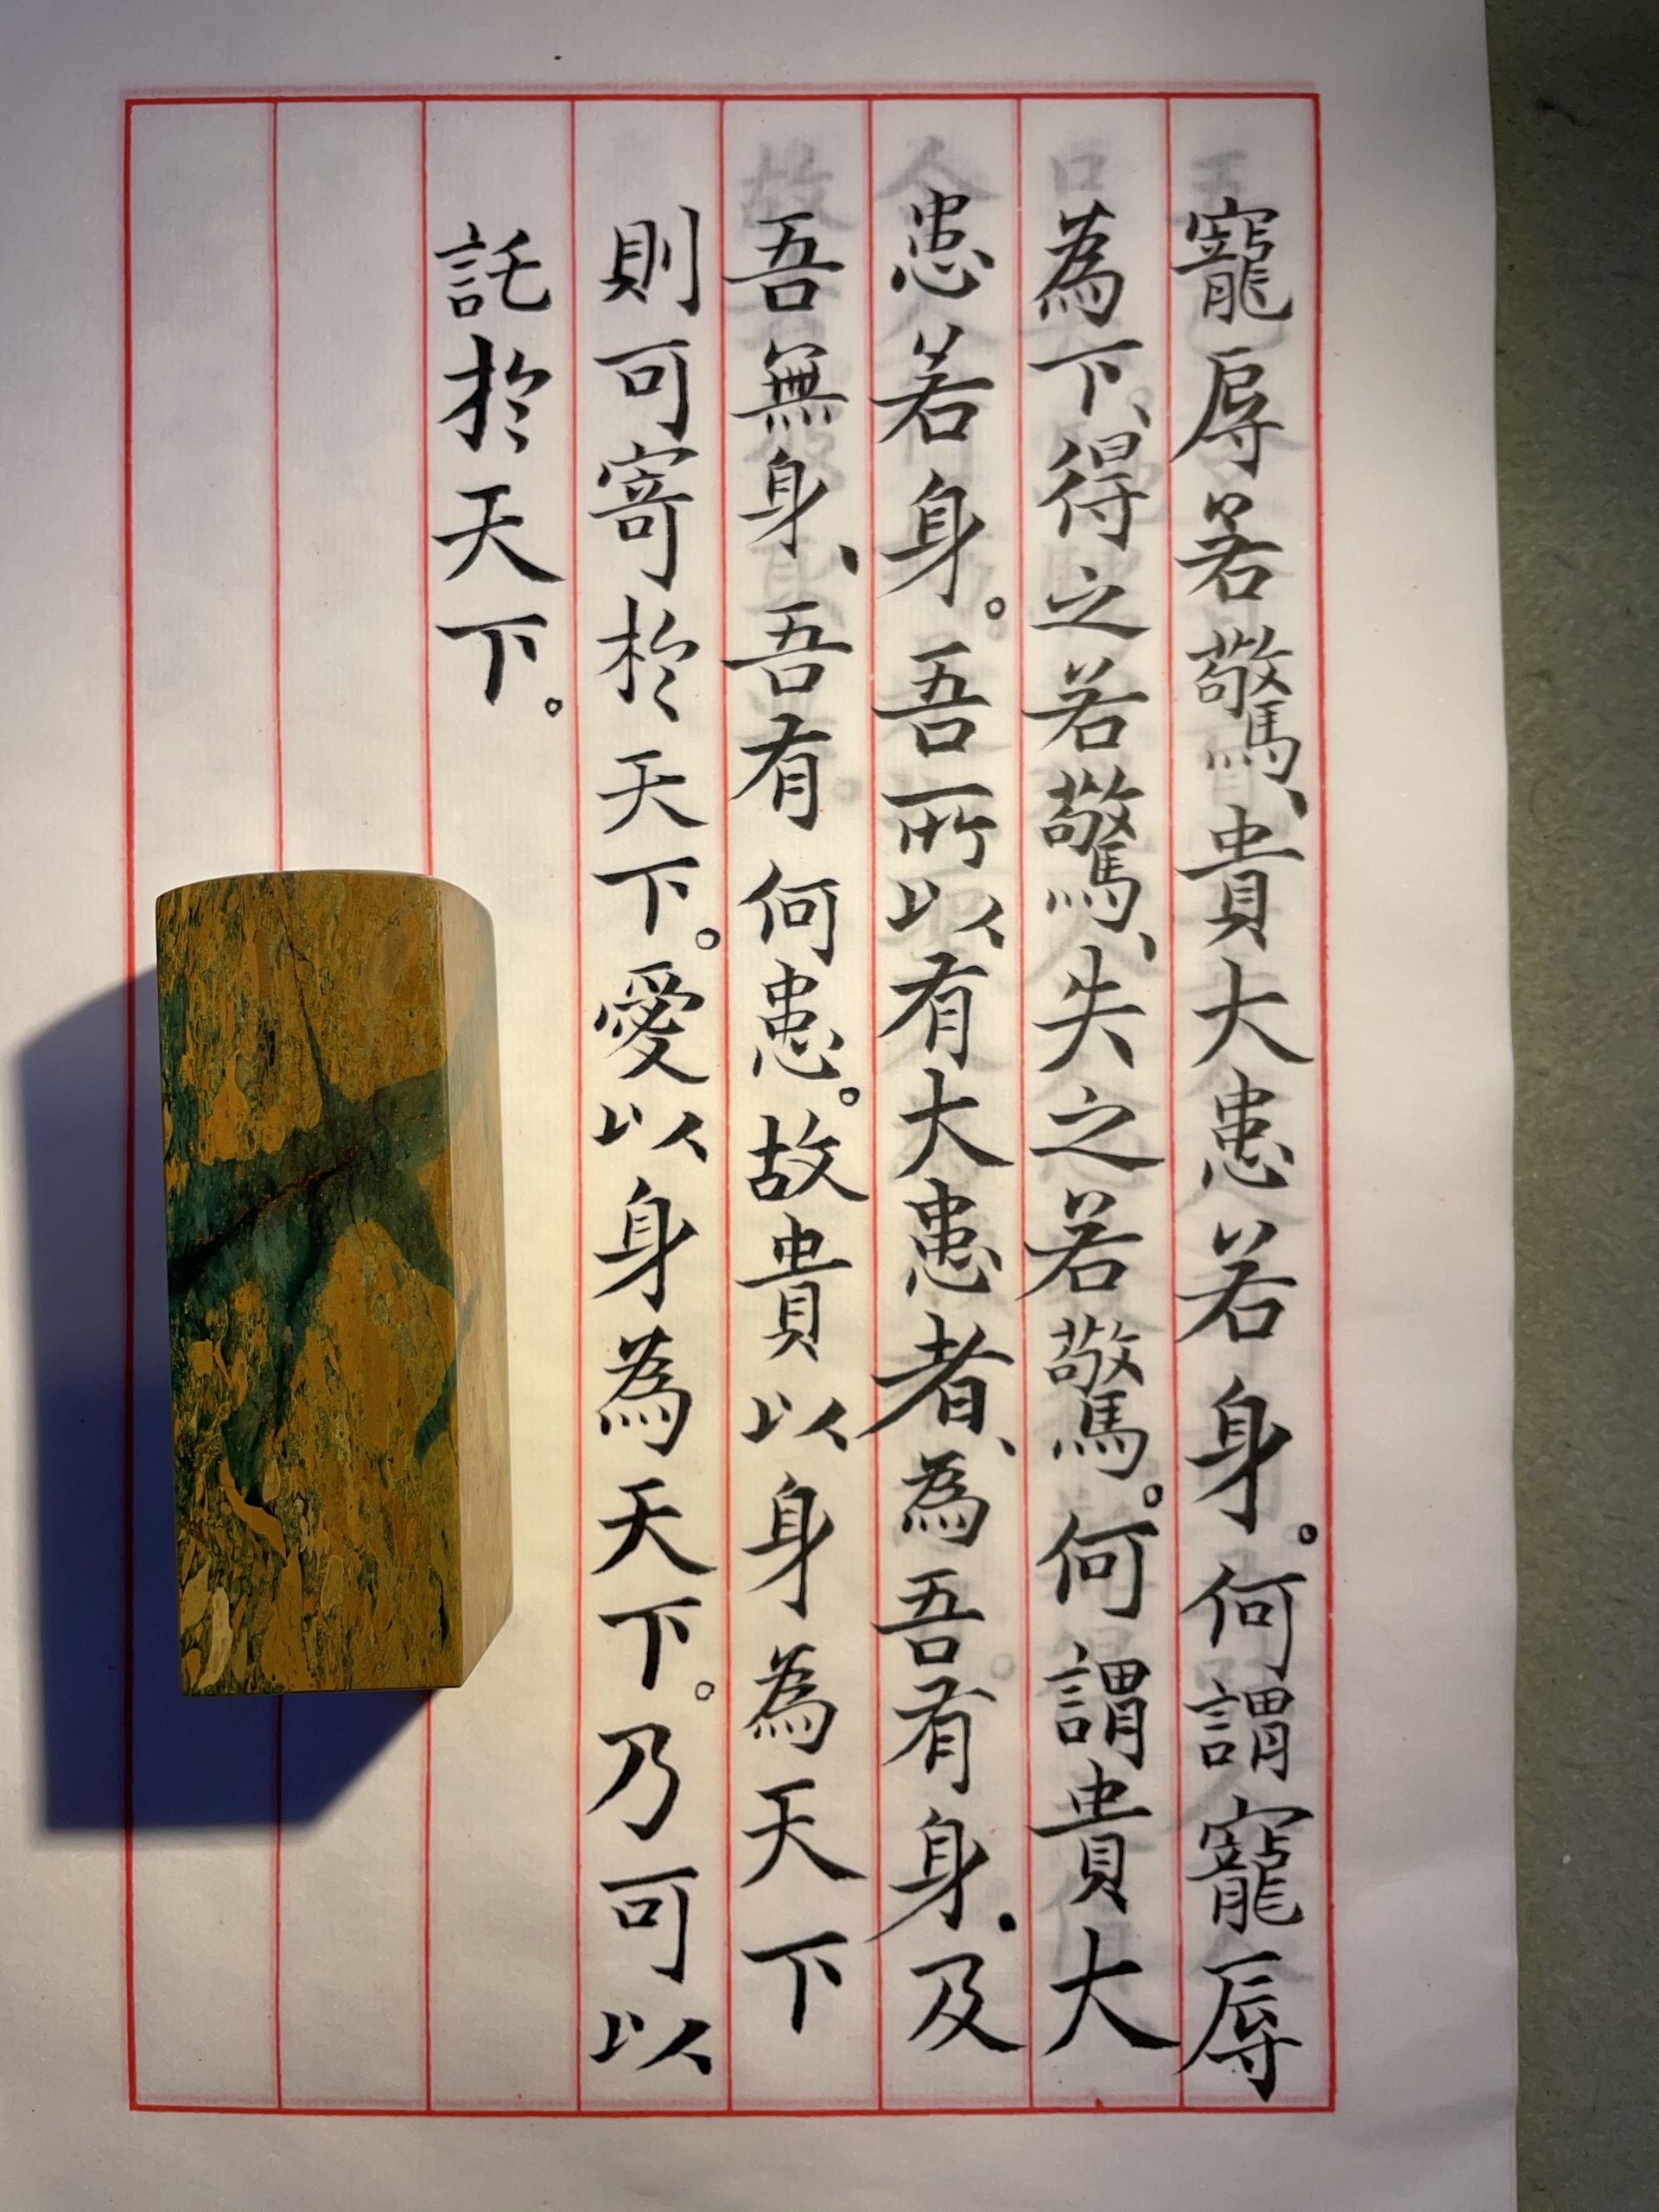 寵辱若驚、貴大患若身。何謂寵辱
為下、得之若驚、失之若驚。何謂貴大
患若身。吾所以有大患者、為吾有身.及
吾無身、吾有何患。故貴以身為天下
則可寄於天下。愛以身為天下。乃可以
託於天下。